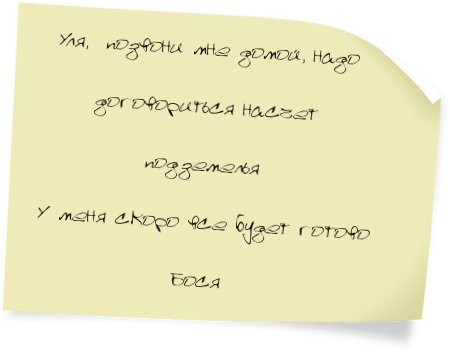 Уля, позвони мне домой, надо
договориться насчет
подземелья
У меня скоро все будет готово
Бося